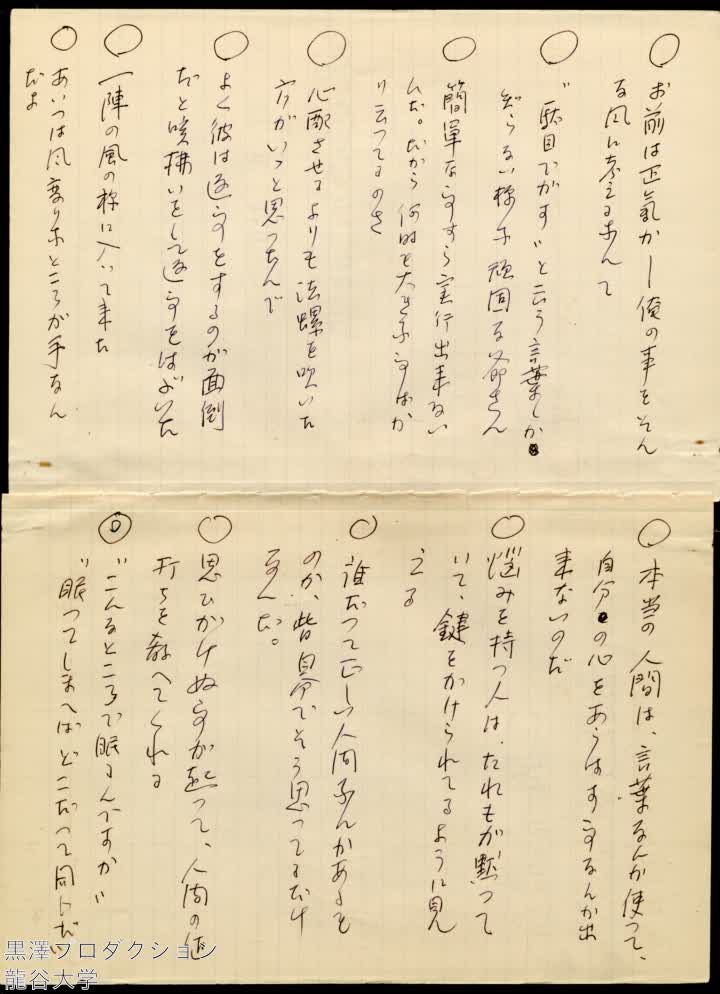 ○ お前は正氣かー俺の事をそん
な風に考えるなんて
○ “駄目でがす”と云う言葉しか
知らない様な頑固な爺さん
○ 簡単な事すら実行出来ない
んだ。だから何時も大きな事ばか
り云ってるのさ
○ 心配させるよりも法螺を吹いた
方がいゝと思ったんで
○ よく彼は返事をするのが面倒
だと咳拂いをして返事をはぶいた
○ 一陣の風の様に入いて来た
○ あいつは風変りなところが手なん
だよ
○ 本当の人間は、言葉なんか使って、
自分の心をあらはす事なんか出
来ないのだ
○ 悩みを持つ人は、たれもが黙って
いて、鍵をかけられてるように見
える
○ 誰だって正しい人間なんかあると
のか、皆自分でそう思ってるだけ
なんだ。
○ 思ひがけぬ事が起って、人間の値
打ちを教へてくれる
○ “こんなところで眠るんですか”
“眠ってしまへばどこだって同じだい
黒澤プロダクション
龍谷大学